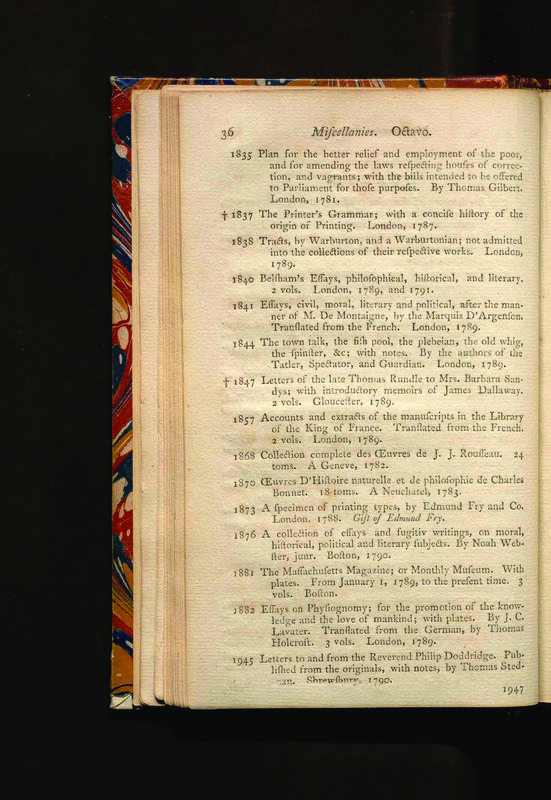 36 Miſcellanies. Octavo.
1835 Plan for the better relief and employment of the poor,
and for amending the laws reſpecting houſes of correc-
tion, and vagrants; with the bills intended to be offered
to Parliament for thoſe purpoſes. By Thomas Gilbert.
London, 1781.
† 1837 The Printer's Grammar; with a conciſe hiſtory of the
origin of Printing. London, 1787.
1838 Tracts, by Warburton, and a Warburtonian; not admitted
into the collections of their reſpective works. London,
1789.
1840 Belſham's Eſſays, philoſophical, hiſtorical, and literary.
2 vols. London, 1789, and 1791.
1841 Eſſays, civil, moral, literary and political, after the man-
ner of M. De Montaigne, by the Marquis D'Argenſon.
Tranſlated from the French. London, 1789.
1844 The town talk, the fiſh pool, the plebeian, the old whig,
the ſpinſter, &c; with notes. By the authors of the
Tatler, Spectator, and Guardian. London, 1789.
† 1847 Letters of the late Thomas Rundle to Mrs. Barbara San-
dys; with introductory memoirs of James Dallaway.
2 vols. Glouceſter, 1789.
1857 Accounts and extracts of the manuſcripts in the Library
of the King of France. Tranſlated from the French.
2 vols. London, 1789.
1868 Collection complete des Œuvres de J. J. Rouſſeau. 24
toms. A Geneve, 1782.
1870 Œuvres D'Hiſtoire naturelle et de philoſophie de Charles
Bonnet. 18 toms. A Neuchatel, 1783.
1873 A ſpecimen of printing types, by Edmund Fry and Co.
London, 1788. Gift of Edmund Fry.
1876 A collection of eſſays and fugitiv writings, on moral,
hiſtorical, political and literary ſubjects. By Noah Web-
ſter, junr. Boſton, 1790.
1881 The Maſſachuſetts Magazine; or Monthly Muſeum. With
plates. From January 1, 1789, to the preſent time. 3
vols. Boſton.
1882 Eſſays on Phyſiognomy; for the promotion of the know-
ledge and the love of mankind; with plates. By J. C.
Lavater. Tranſlated from the German, by Thomas
Holcroft. 3 vols. London, 1789.
1945 Letters to and from the Reverend Philip Doddridge. Pub-
liſhed from the originals, with notes, by Thomas Sted-
man. Shrewſbury, 1790.
1947